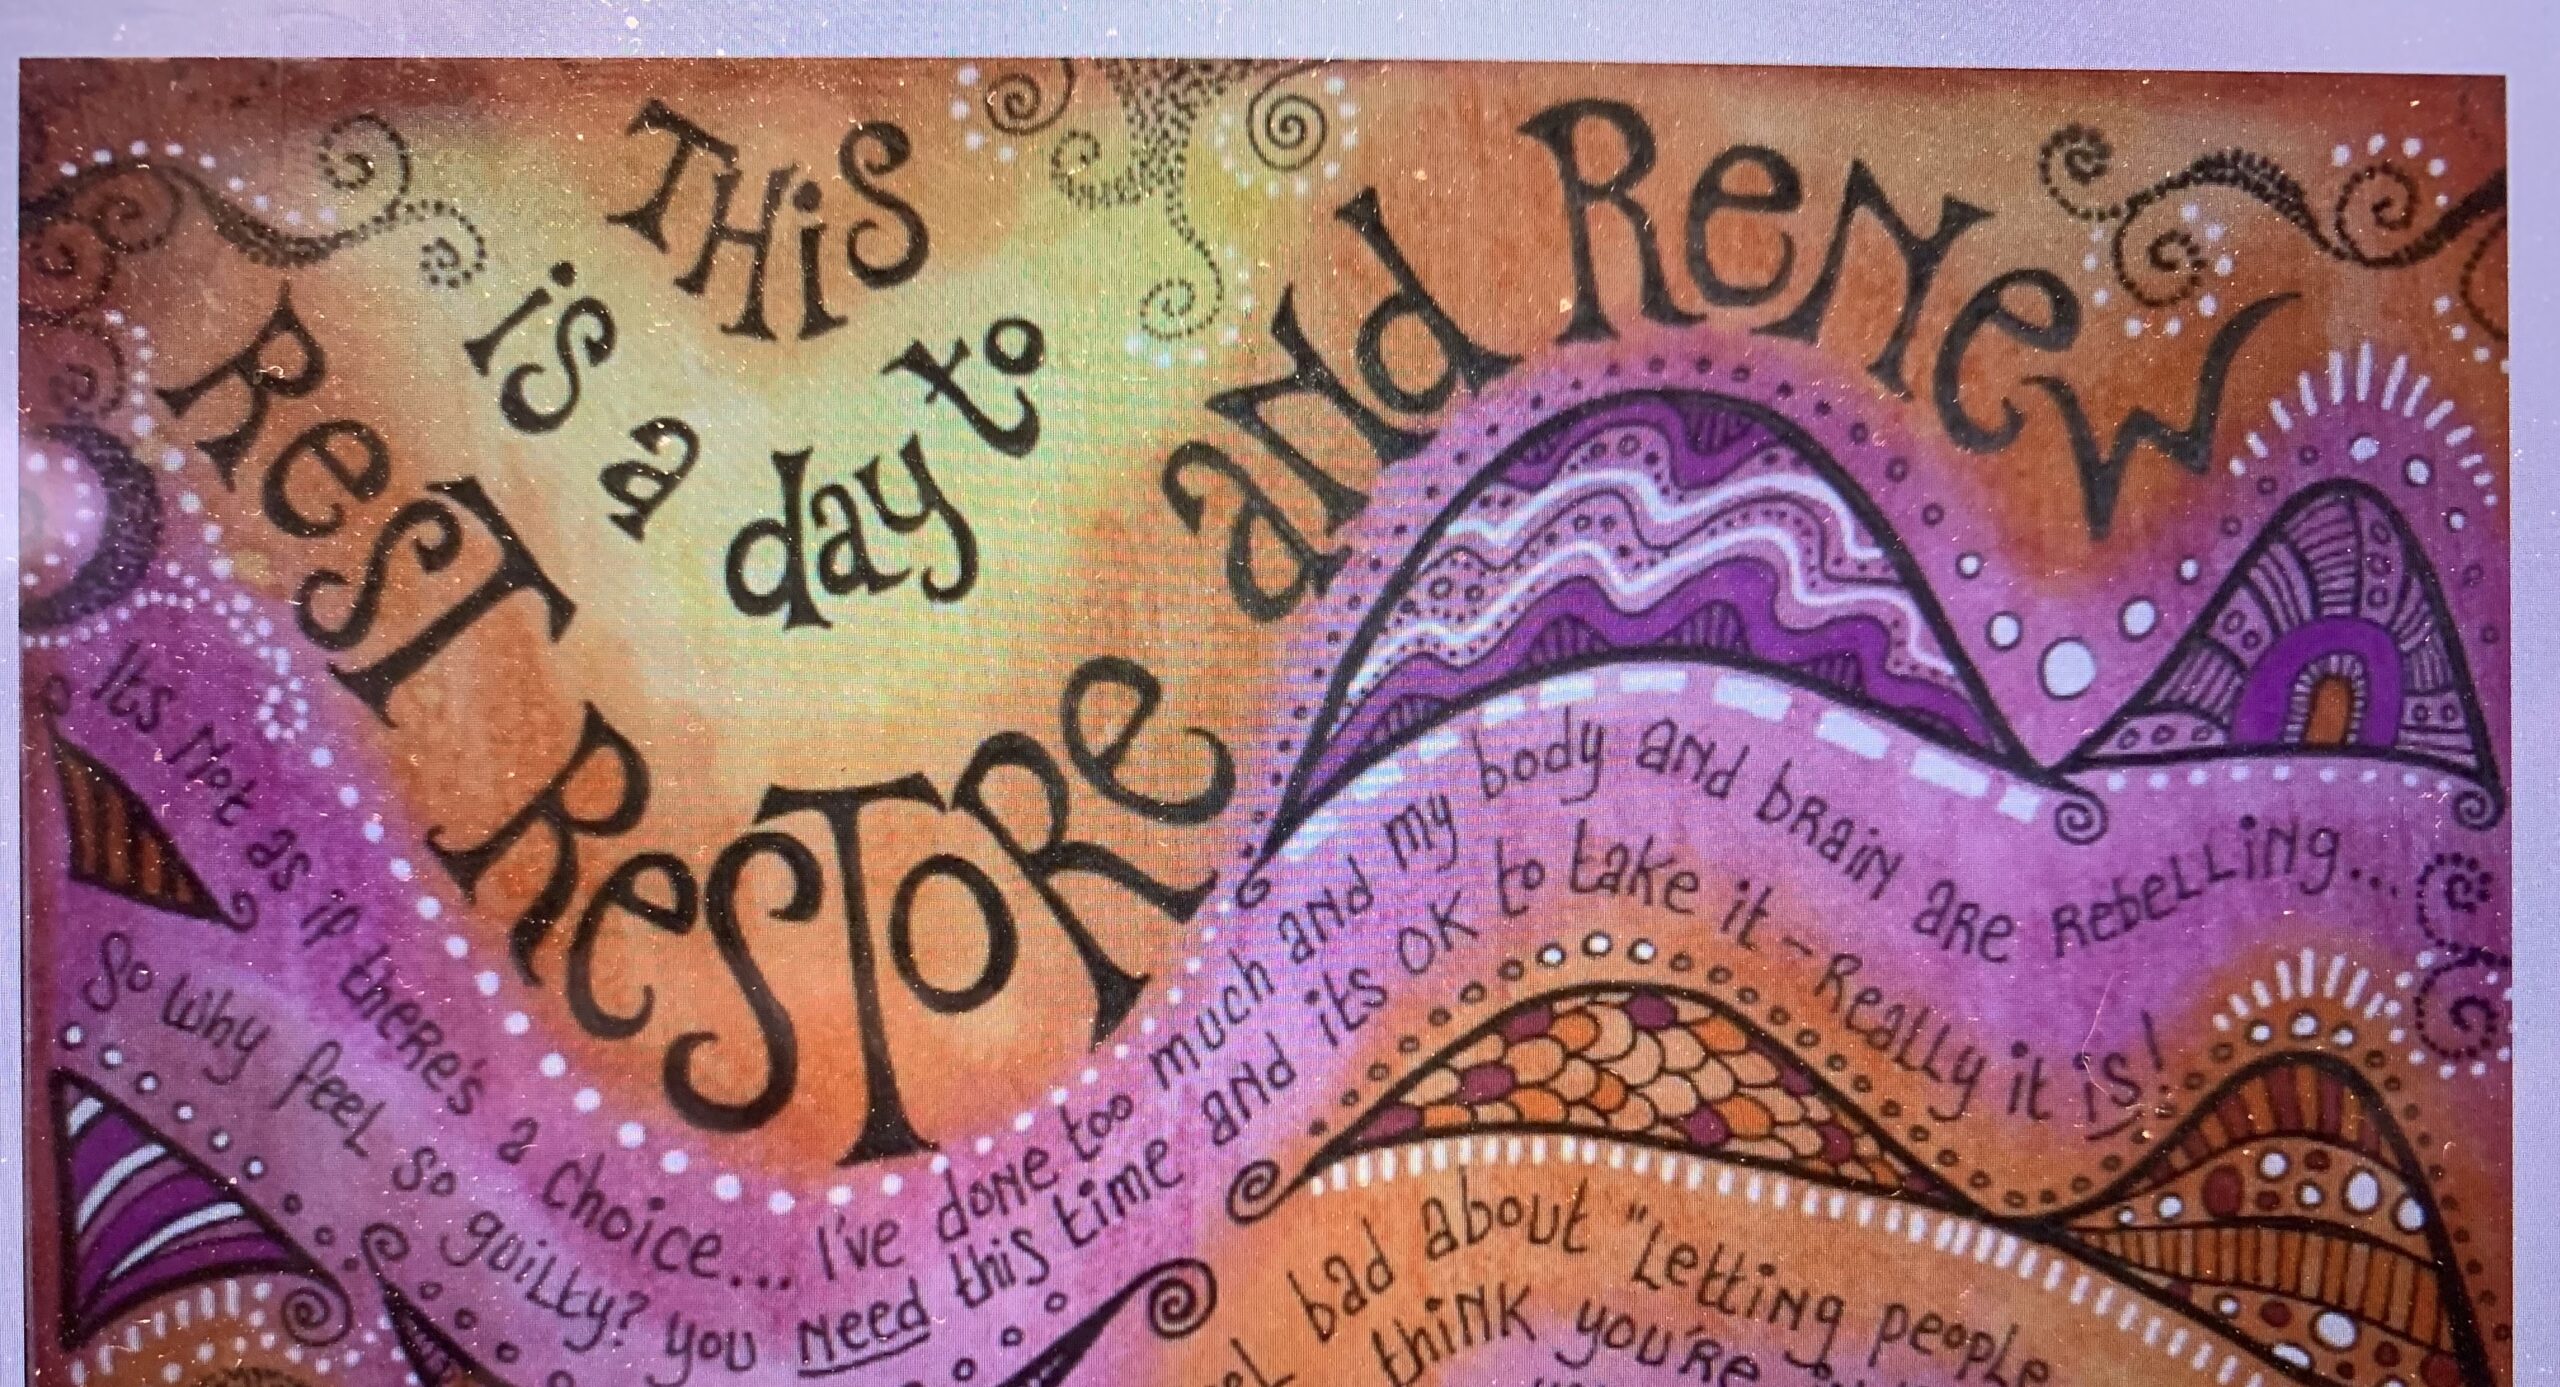 THiS
is a day to
ReST ReSTORe
and ReNeW
Its Not as if theRe's a choice... I've doNe too much aNd my body aNd bRaiN aRe RebeLLiNg...
So why feeL so guiLty? you Need this time aNd its OK to take it - ReaLLy it is!
bad about "LettiNg peopLe
thiNK you'Re